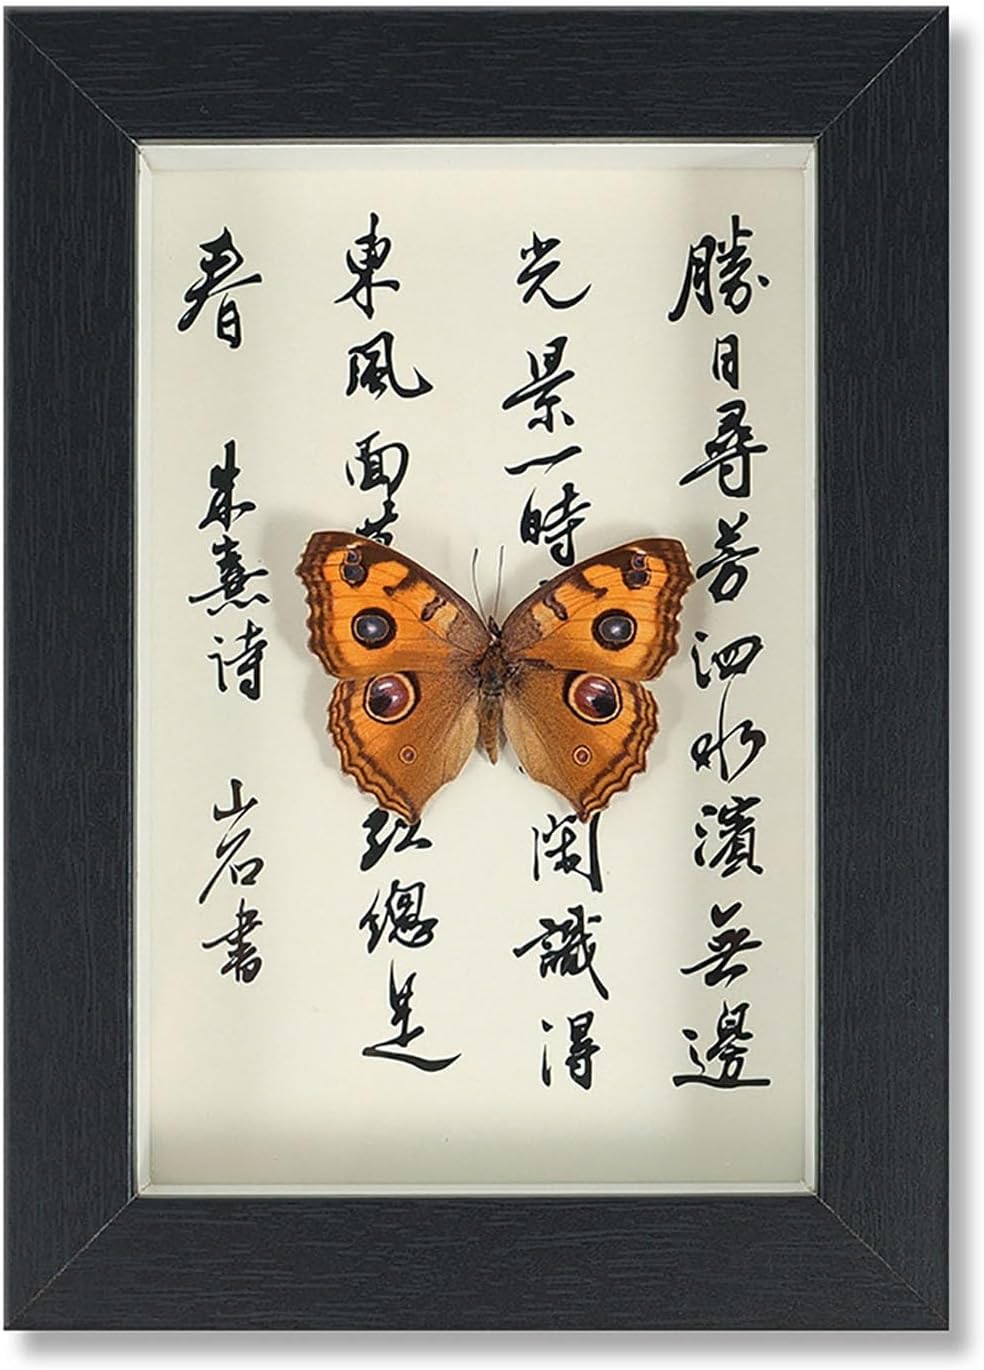 勝日尋芳泗水濱無邊
光景一時閑識得
東風面紅總是
春 朱熹詩 山石書